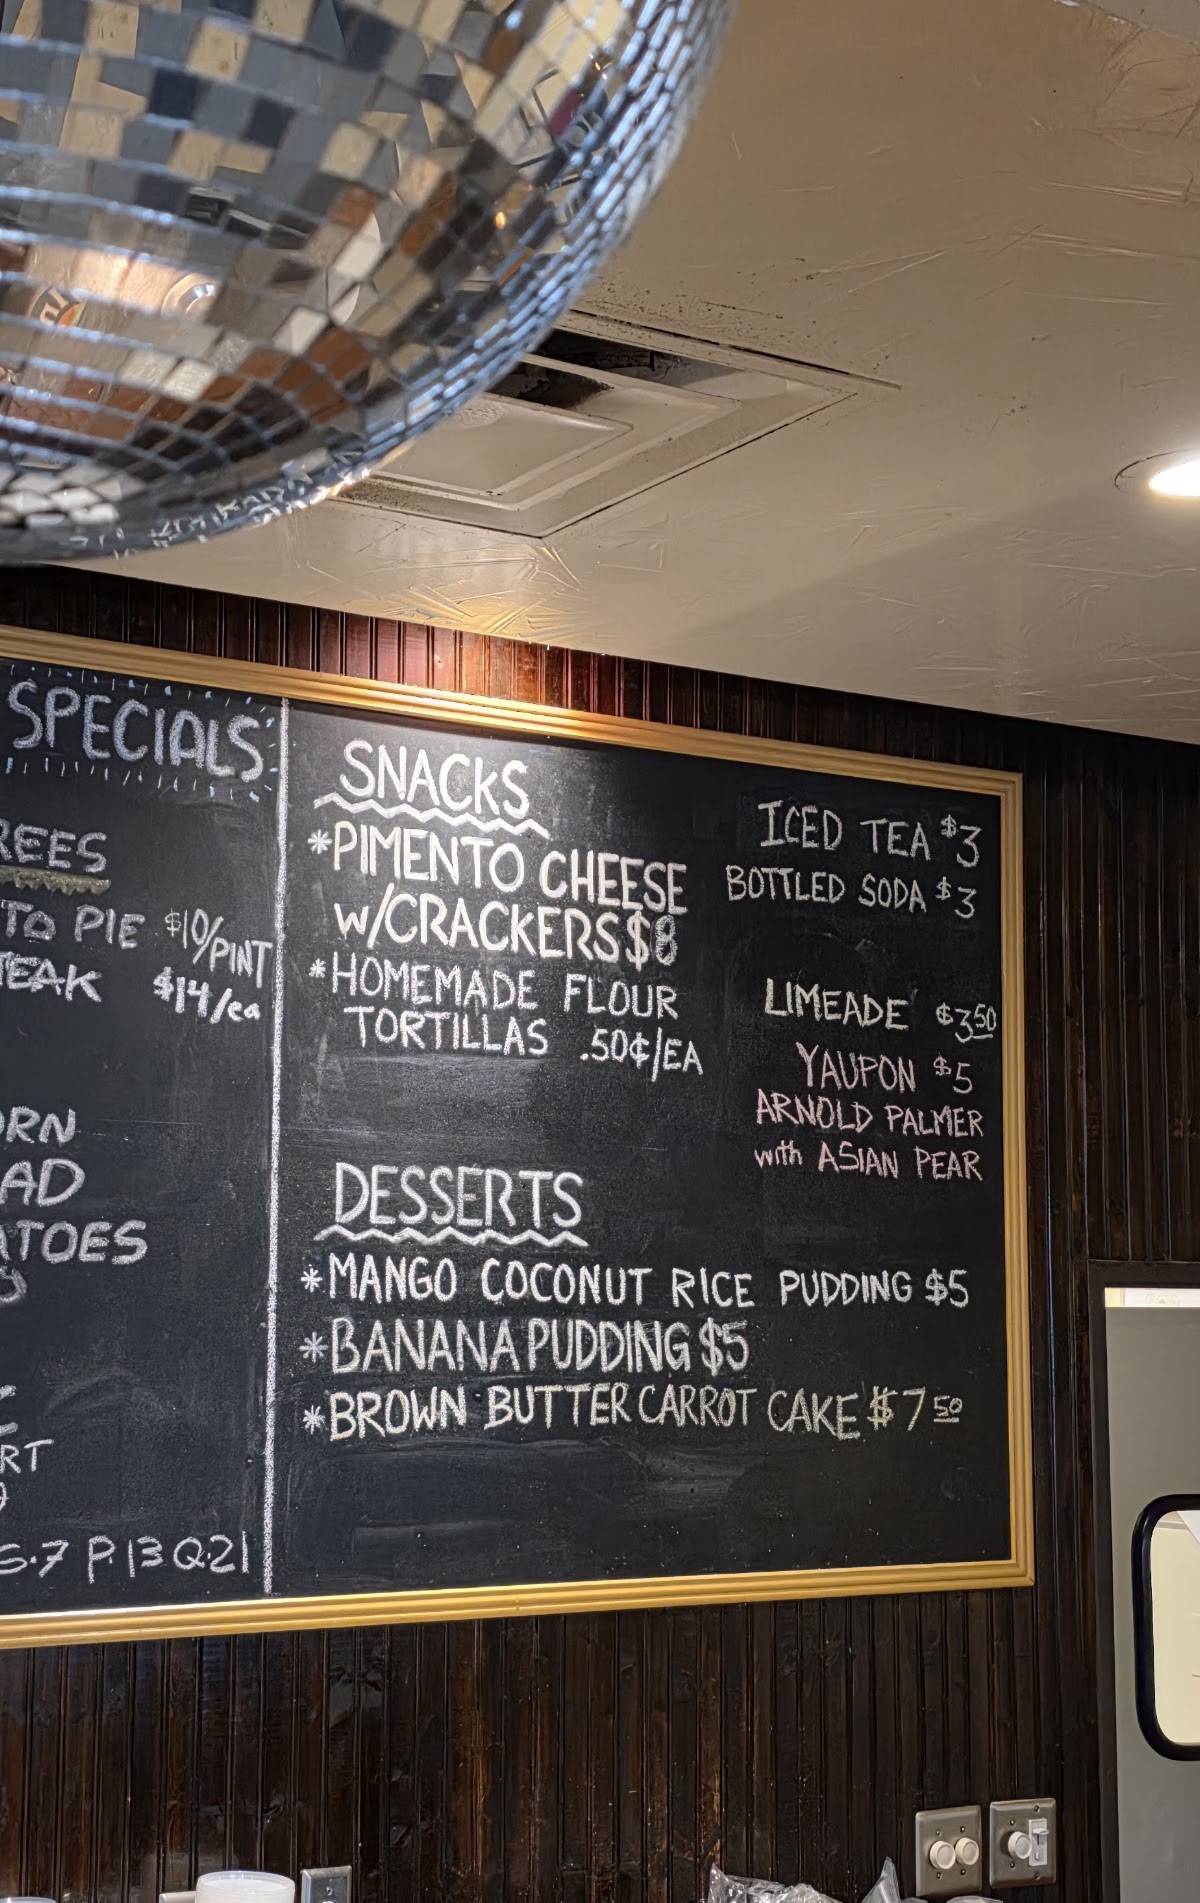 SPECIALS
PIE $10/PINT
$14/ea
P.13 Q.21
SNACKS
*PIMENTO CHEESE
w/CRACKERS $8
*HOMEMADE FLOUR
TORTILLAS .50¢/EA
ICED TEA $3
BOTTLED SODA $3
LIMEADE $3.50
YAUPON $5
ARNOLD PALMER
with ASIAN PEAR
DESSERTS
*MANGO COCONUT RICE PUDDING $5
*BANANA PUDDING $5
*BROWN BUTTER CARROT CAKE $7 50